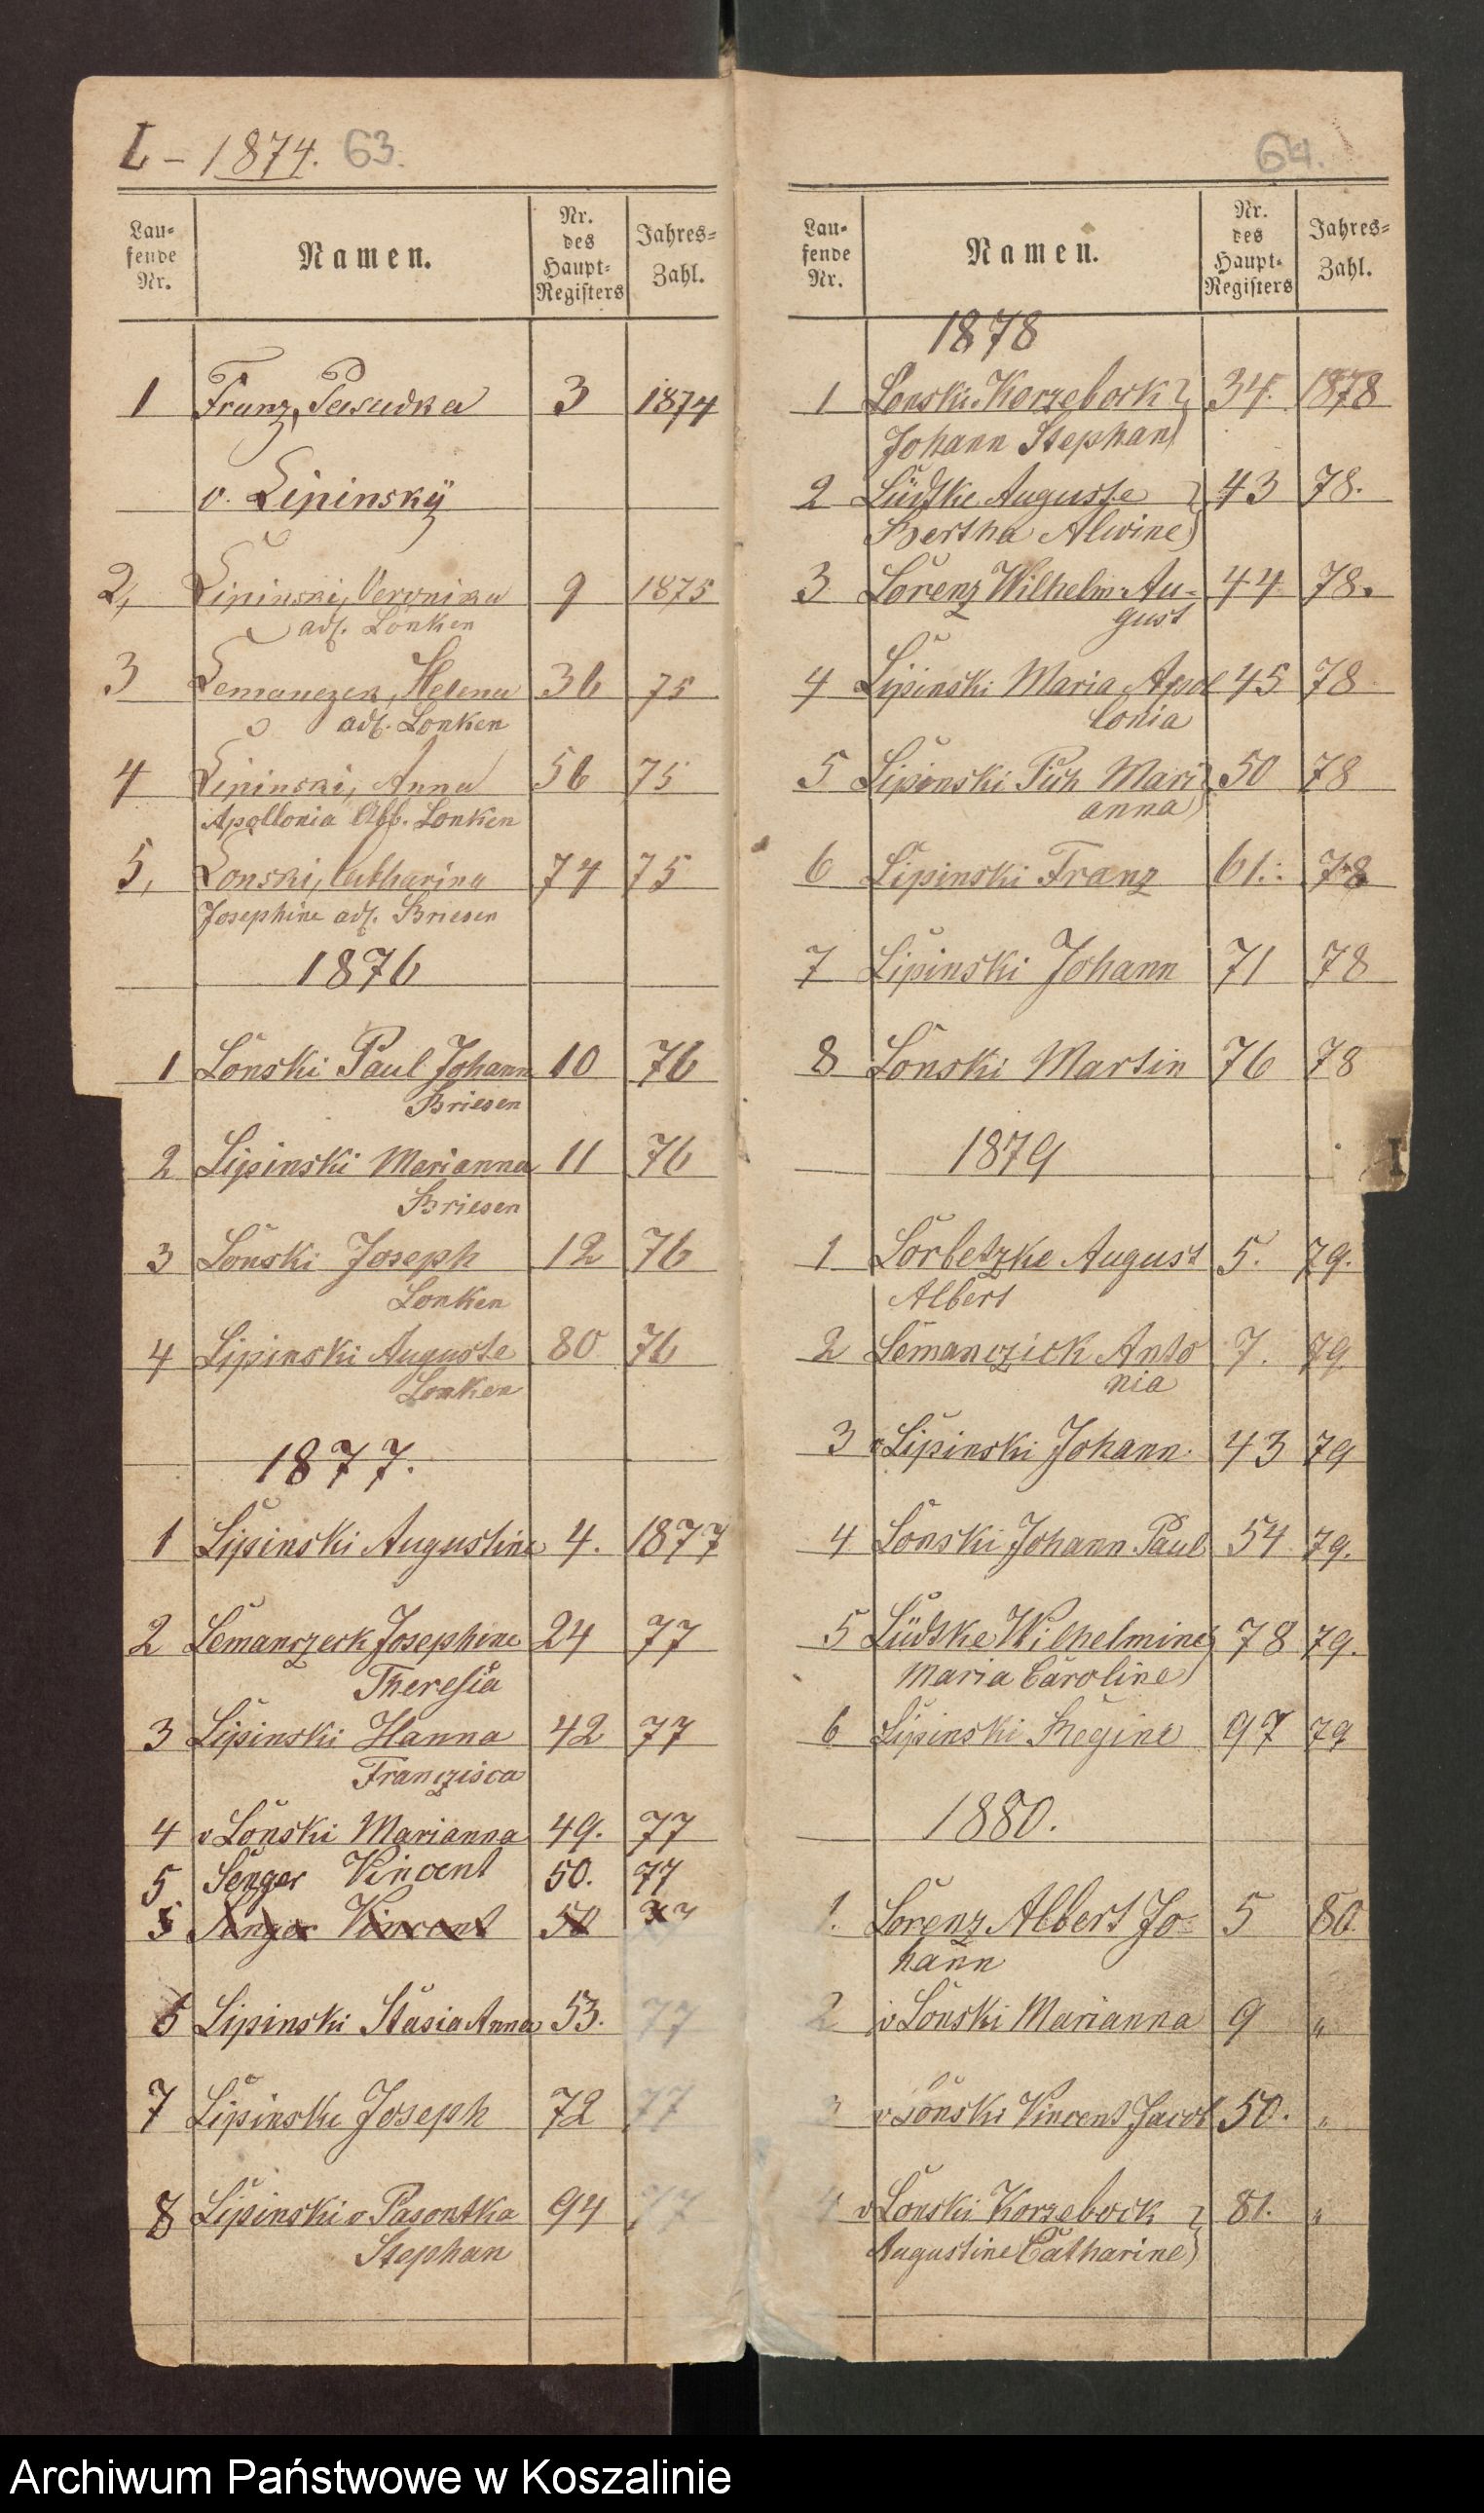 L - 1874. 63.
Lau-
fende
Nr.
Namen.
Nr.
des
Haupt-
Registers
Jahres-
Zahl.
1 Franz, Pasudka 3 1874
v. Lipinsky
2, Lipinski, Veronika 9 1875
adl. Lonken
3 Lemanczek, Helena 36 75
adl. Lonken
4 Lipinski, Anna 56 75
Apollonia Abb. Lonken
5, Lonski, Catharina 74 75
Josephine adl. Briesen
1876
1 Lonski Paul Johann 10 76
Briesen
2 Lipinski Marianna 11 76
Briesen
3 Lonski Joseph 12 76
Lonken
4 Lipinski Auguste 80 76
Lonken
1877.
1 Lipinski Augustine 4. 1877
2 Lemanczeck Josephine 24 77
Theresia
3 Lipinski Hanna 42 77
Franczisca
4 v Lonski Marianna 49. 77
5 Senger Vincent 50. 77
5 Senger Vincent 50 77
6 Lipinski Stasia Anna 53. 77
7 Lipinski Joseph 72 77
8 Lipinski v Pasontka 94 77
Stephan
64.
Lau-
fende
Nr.
Namen.
Nr.
des
Haupt-
Registers
Jahres-
Zahl.
1878
1 Lonski Korzebock } 34. 1878
Johann Stephan
2 Lüdtke Auguste } 43 78.
Bertha Alwine
3 Lorenz Wilhelm Au- 44 78.
gust
4 Lipinski Maria Apol 45 78
lonia
5 Lipinski Pich Mari } 50 78
anna
6 Lipinski Franz 61. 78
7 Lipinski Johann 71 78
8 Lonski Martin 76 78
1879
I
1 Lorbetzke August 5. 79.
Albert
2 Lemanczick Anto 7. 79.
nia
3 v Lipinski Johann. 43 79
4 Lonski Johann Paul 54 79.
5 Lüdtke Wilhelmine } 78 79.
Maria Caroline
6 Lipinski Regine 97 79
1880.
1. Lorenz Albert Jo- 5 80.
hann
2 v Lonski Marianna 9 "
3 v Lonski Vincent Jacob 50. "
4 v Lonski Korzebock } 81. "
Augustine Catharine
Archiwum Państwowe w Koszalinie